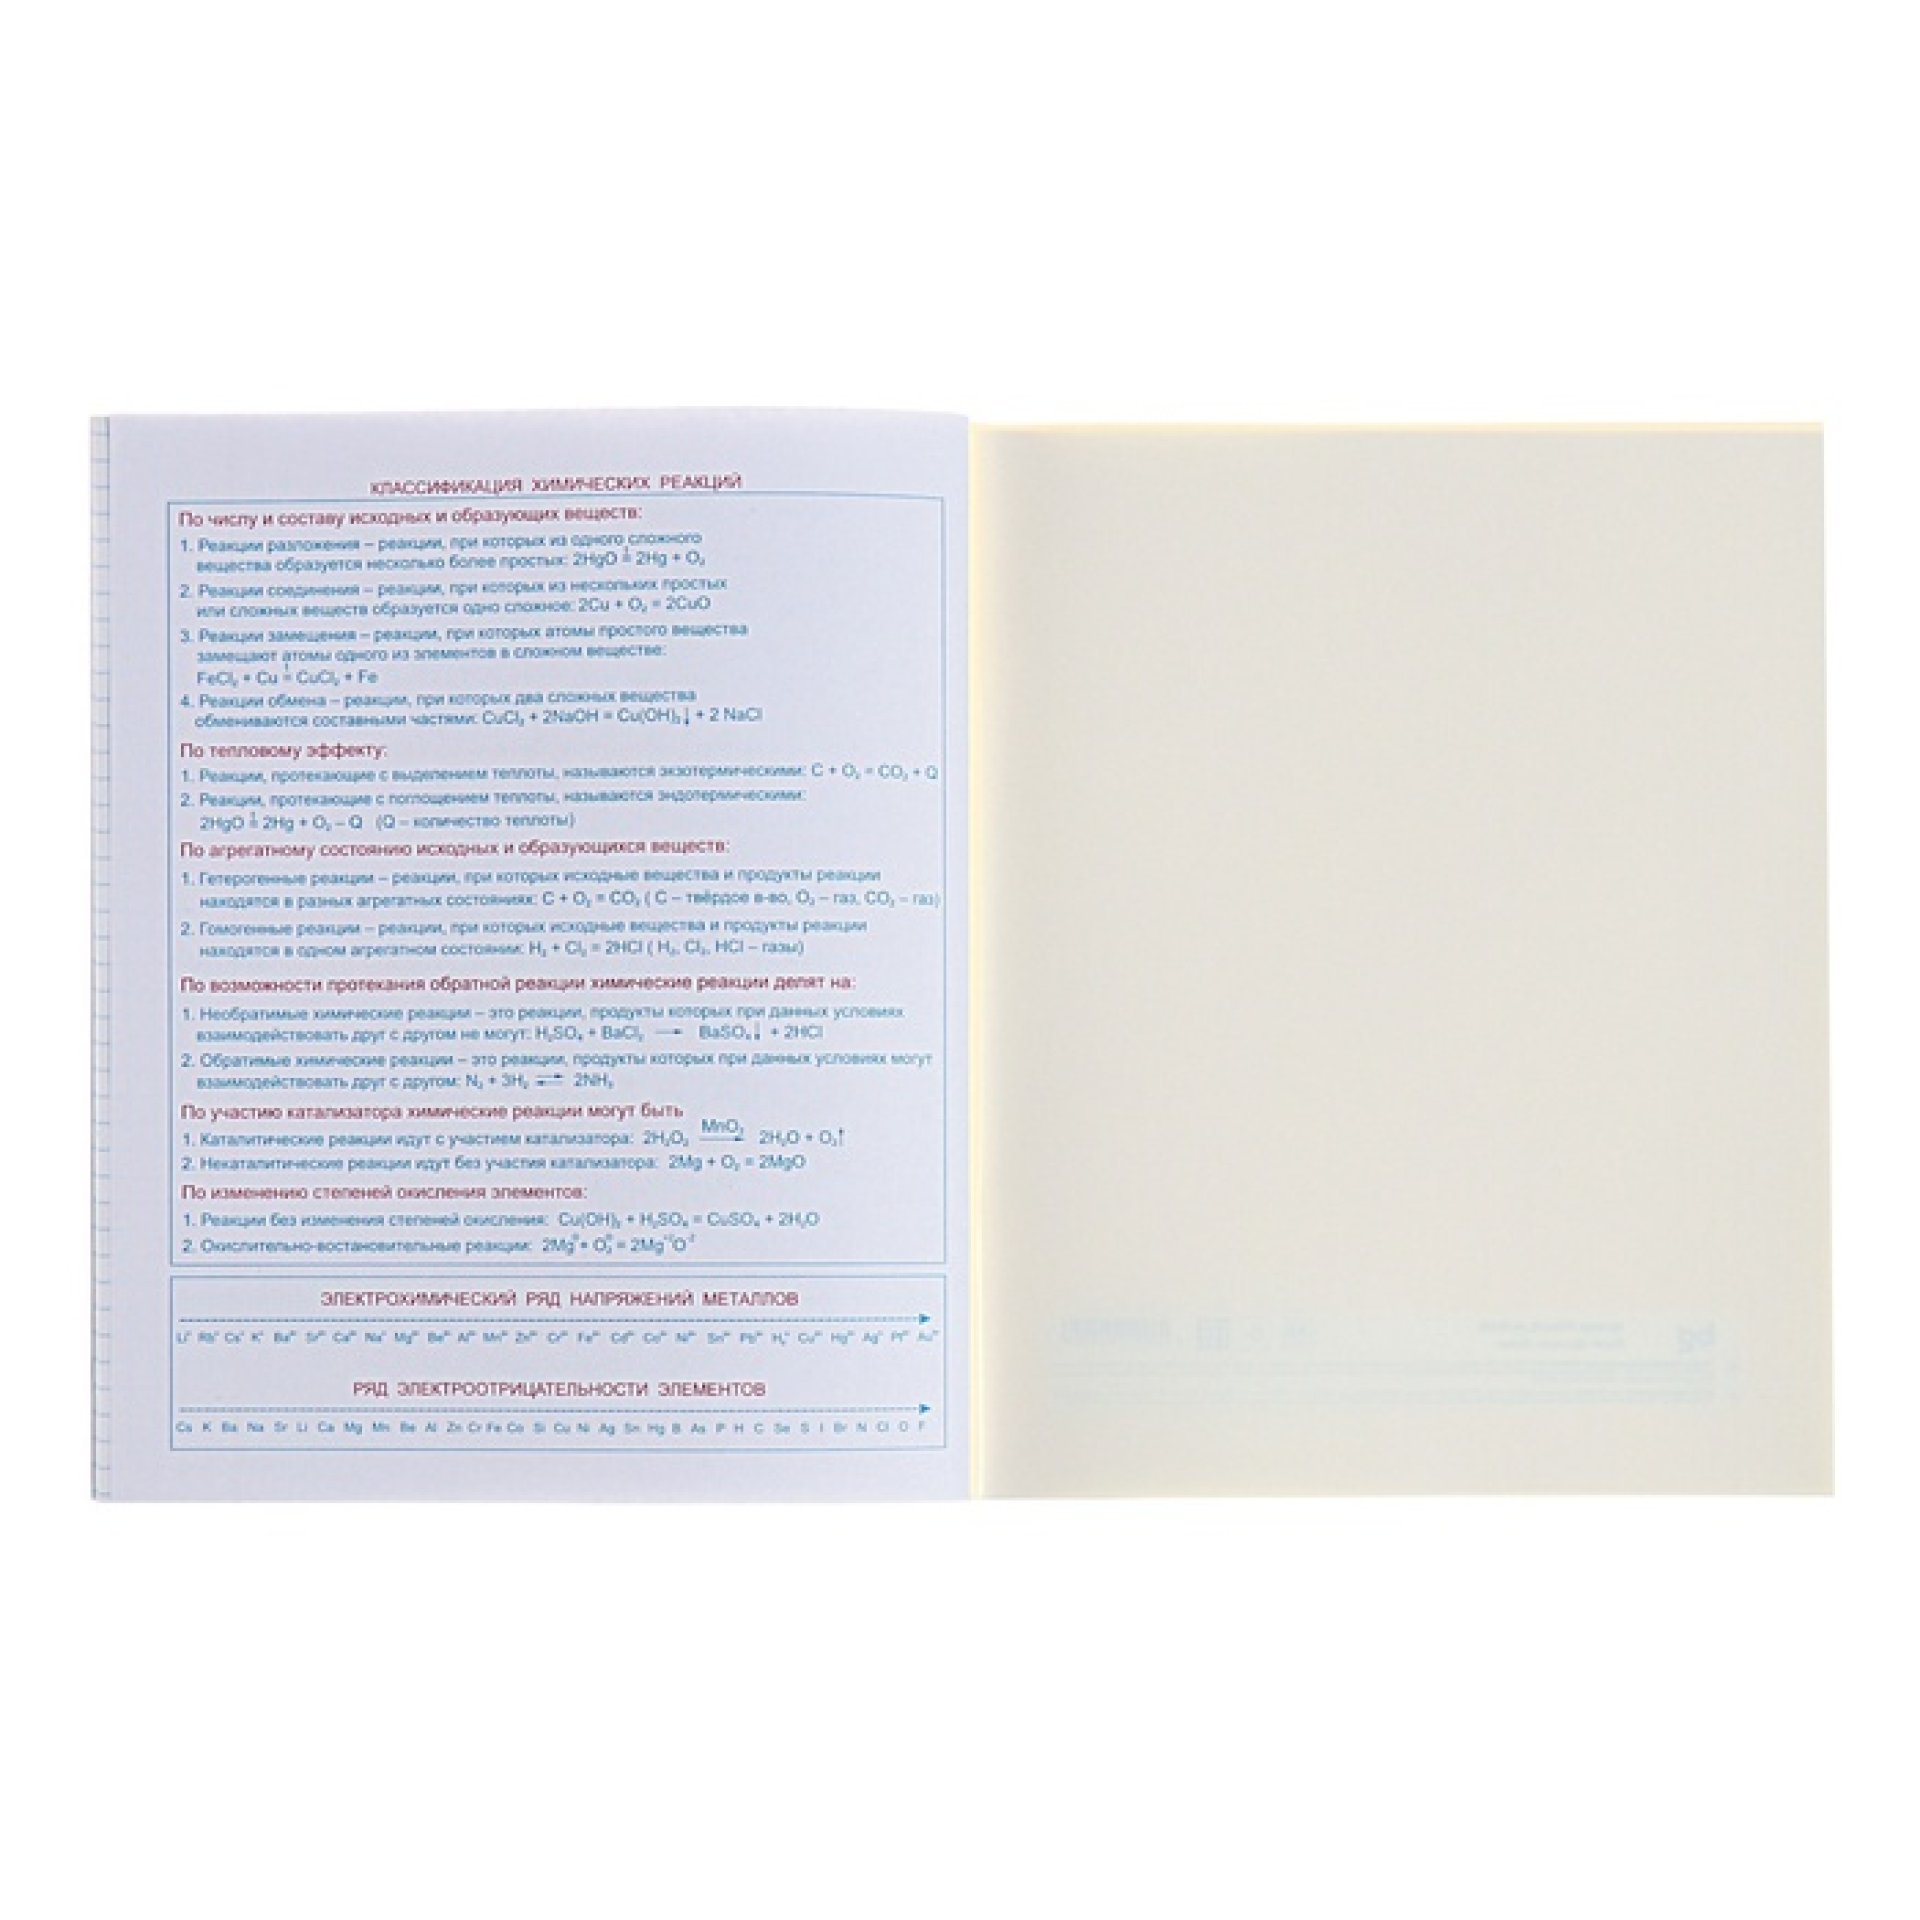 КЛАССИФИКАЦИЯ ХИМИЧЕСКИХ РЕАКЦИЙ
По числу и составу исходных и образующих веществ:
1. Реакции разложения – реакции, при которых из одного сложного
вещества образуется несколько более простых: 2HgO =t 2Hg + O₂
2. Реакции соединения – реакции, при которых из нескольких простых
или сложных веществ образуется одно сложное: 2Cu + O₂ = 2CuO
3. Реакции замещения – реакции, при которых атомы простого вещества
замещают атомы одного из элементов в сложном веществе:
FeCl₂ + Cu =t CuCl₂ + Fe
4. Реакции обмена – реакции, при которых два сложных вещества
обмениваются составными частями: CuCl₂ + 2NaOH = Cu(OH)₂↓ + 2 NaCl
По тепловому эффекту:
1. Реакции, протекающие с выделением теплоты, называются экзотермическими: C + O₂ = CO₂ + Q
2. Реакции, протекающие с поглощением теплоты, называются эндотермическими:
2HgO =t 2Hg + O₂ – Q (Q – количество теплоты)
По агрегатному состоянию исходных и образующихся веществ:
1. Гетерогенные реакции – реакции, при которых исходные вещества и продукты реакции
находятся в разных агрегатных состояниях: C + O₂ = CO₂ ( C – твёрдое в-во, O₂ – газ, CO₂ – газ)
2. Гомогенные реакции – реакции, при которых исходные вещества и продукты реакции
находятся в одном агрегатном состоянии: H₂ + Cl₂ = 2HCl ( H₂, Cl₂, HCl – газы)
По возможности протекания обратной реакции химические реакции делят на:
1. Необратимые химические реакции – это реакции, продукты которых при данных условиях
взаимодействовать друг с другом не могут: H₂SO₄ + BaCl₂ → BaSO₄↓ + 2HCl
2. Обратимые химические реакции – это реакции, продукты которых при данных условиях могут
взаимодействовать друг с другом: N₂ + 3H₂ ⇄ 2NH₃
По участию катализатора химические реакции могут быть
MnO₂
1. Каталитические реакции идут с участием катализатора: 2H₂O₂ → 2H₂O + O₂↑
2. Некаталитические реакции идут без участия катализатора: 2Mg + O₂ = 2MgO
По изменению степеней окисления элементов:
1. Реакции без изменения степеней окисления: Cu(OH)₂ + H₂SO₄ = CuSO₄ + 2H₂O
2. Окислительно-востановительные реакции: 2Mg⁰ + O₂⁰ = 2Mg⁺²O⁻²
ЭЛЕКТРОХИМИЧЕСКИЙ РЯД НАПРЯЖЕНИЙ МЕТАЛЛОВ
Li⁺ Rb⁺ Cs⁺ K⁺ Ba²⁺ Sr²⁺ Ca²⁺ Na⁺ Mg²⁺ Be²⁺ Al³⁺ Mn²⁺ Zn²⁺ Cr³⁺ Fe²⁺ Cd²⁺ Co²⁺ Ni²⁺ Sn²⁺ Pb²⁺ H₂⁺ Cu²⁺ Hg²⁺ Ag⁺ Pt²⁺ Au³⁺
РЯД ЭЛЕКТРООТРИЦАТЕЛЬНОСТИ ЭЛЕМЕНТОВ
Cs K Ba Na Sr Li Ca Mg Mn Be Al Zn Cr Fe Co Si Cu Ni Ag Sn Hg B As P H C Se S I Br N Cl O F